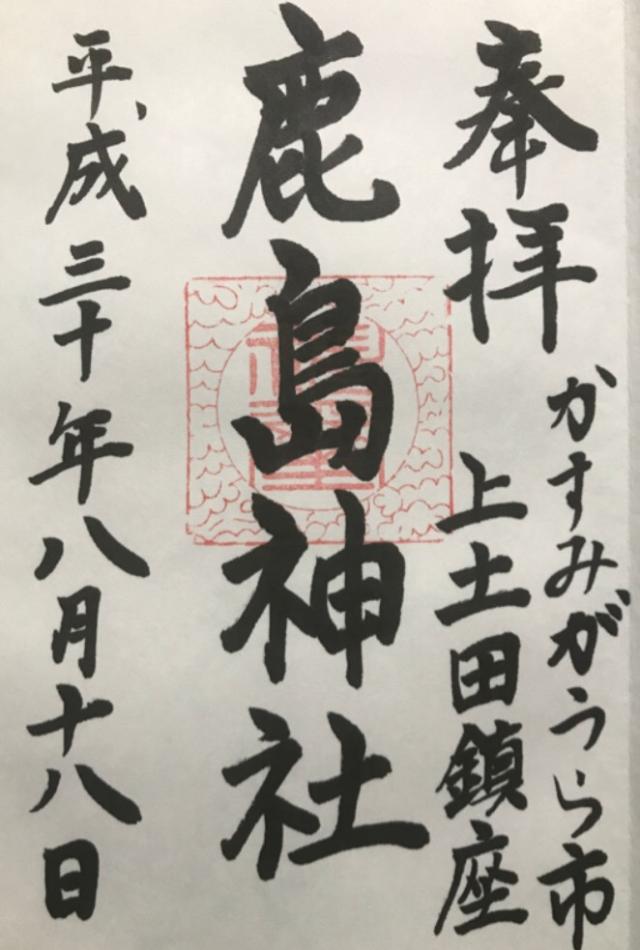 奉拝
かすみがうら市
上土田鎮座
鹿島神社
平成三十年八月十八日